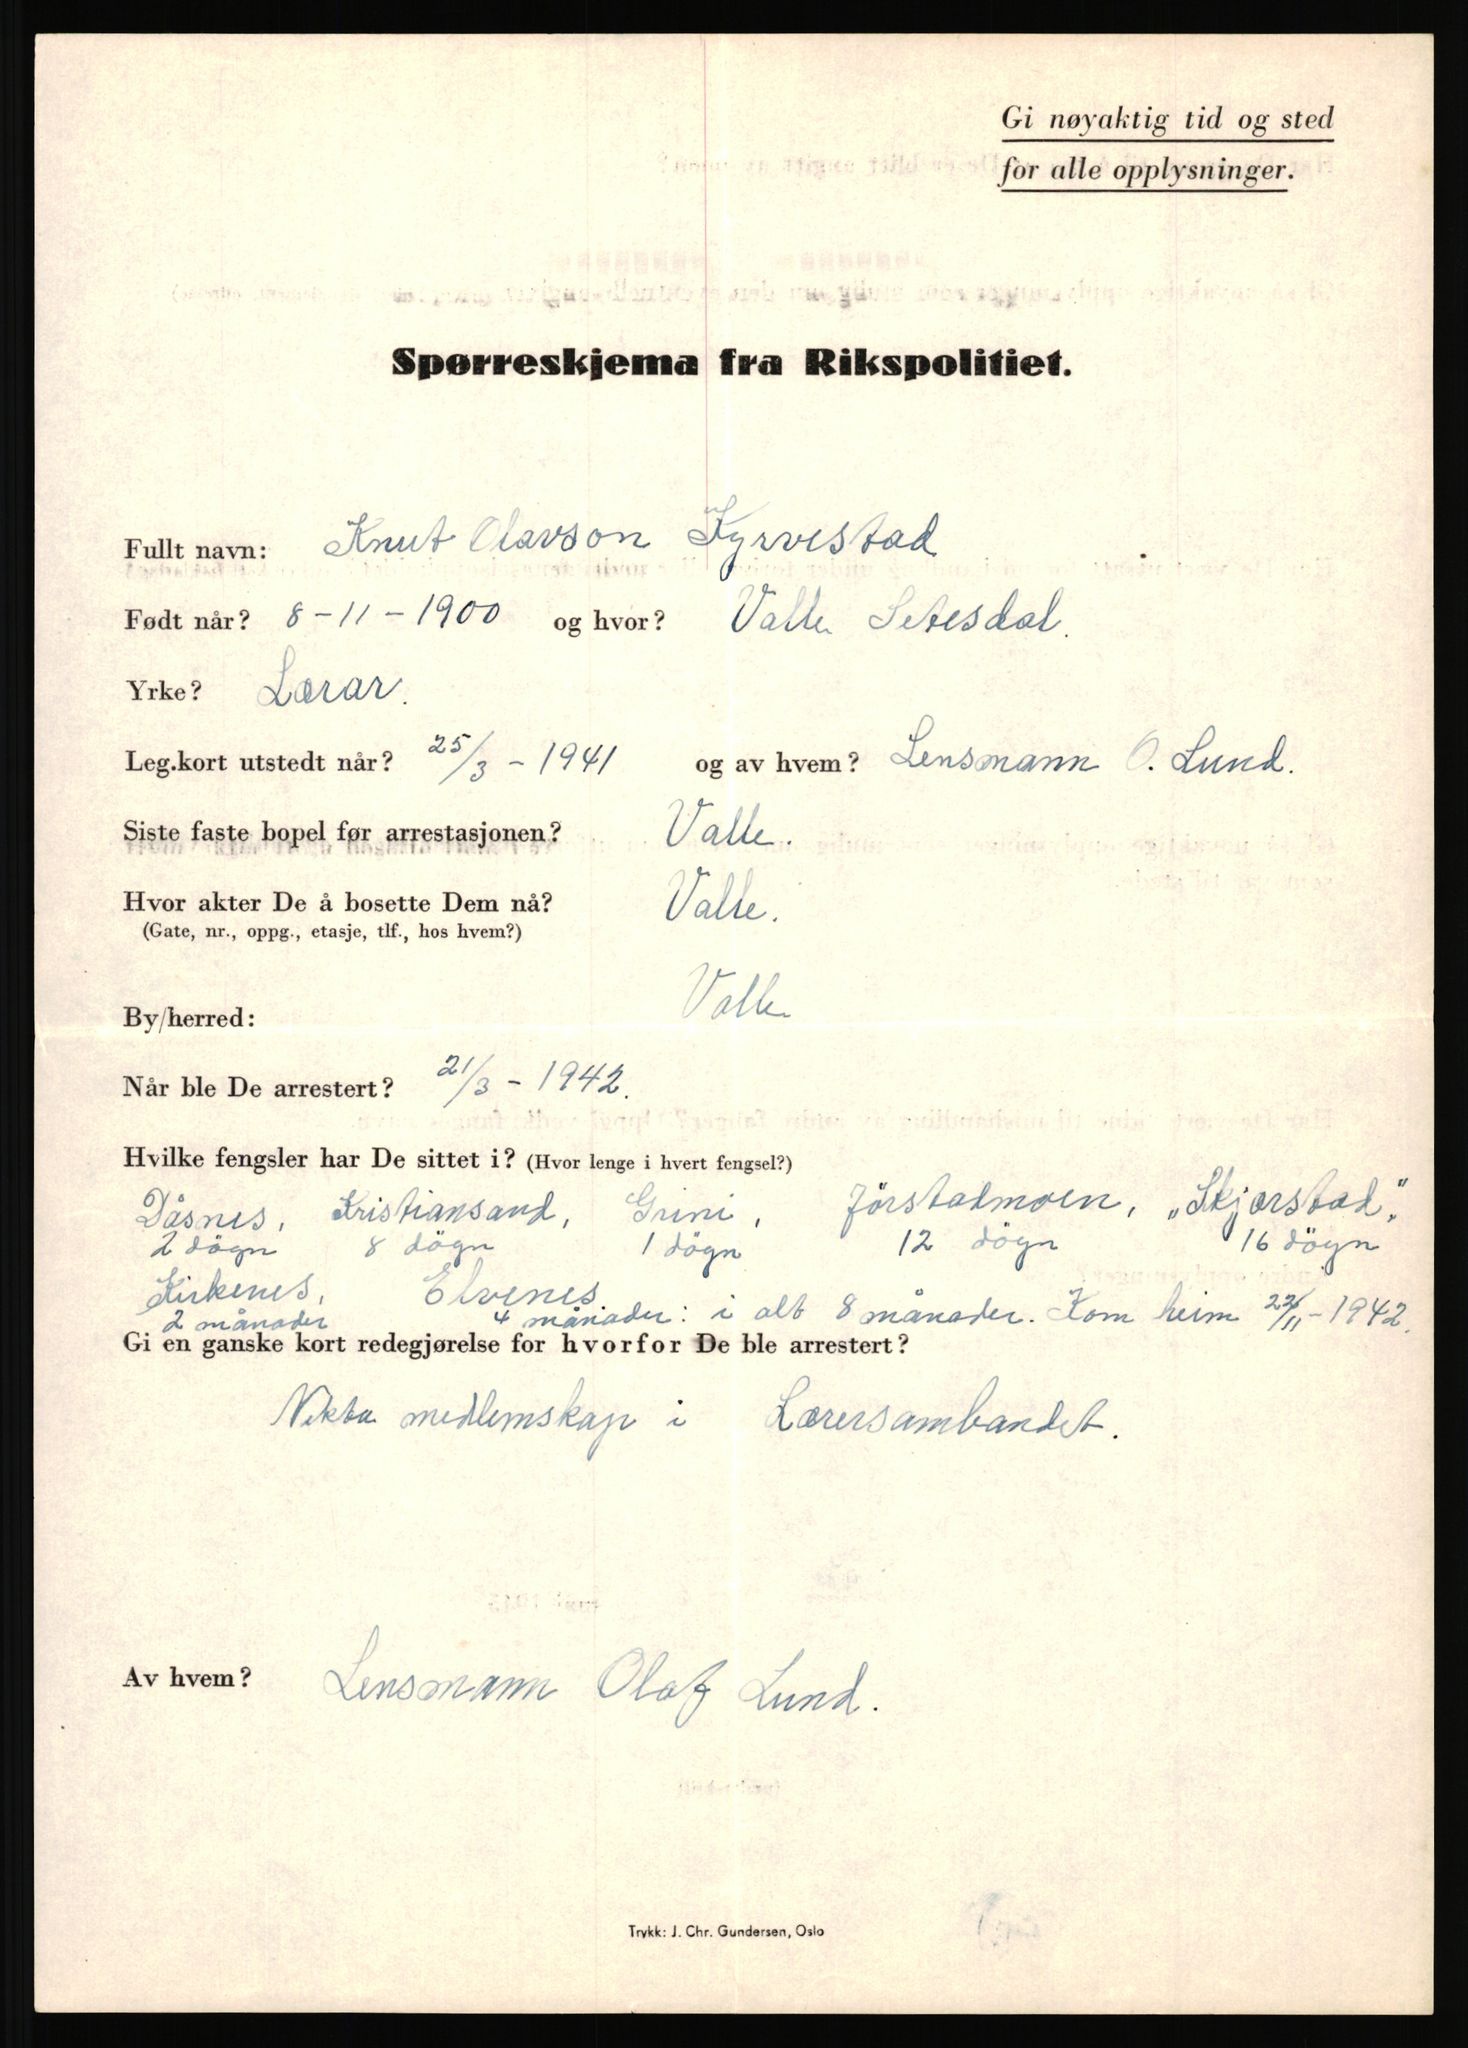 Gi nøyaktig tid og sted
for alle opplysninger.
Spørreskjema fra Rikspolitiet.
Fullt navn: Knut Olavson Kyrvestad
Født når? 8-11-1900 og hvor? Valle Setesdal.
Yrke? Lærar.
Leg.kort utstedt når? 25/3-1941 og av hvem? Lensmann O. Lund.
Siste faste bopel før arrestasjonen? Valle.
Hvor akter De å bosette Dem nå? Valle.
(Gate, nr., oppg., etasje, tlf., hos hvem?)
By/herred: Valle
Når ble De arrestert? 21/3-1942.
Hvilke fengsler har De sittet i? (Hvor lenge i hvert fengsel?)
Dåsnes, Kristiansand, Grini, Jörstadmoen, „Skjærstad”.
2 dögn 8 dögn 1 dögn 12 dögn 16 dögn
Kirkenes, Elvenes
2 månader 4 månader: i alt 8 månader. Kom heim 22/11-1942.
Gi en ganske kort redegjørelse for hvorfor De ble arrestert?
Nekta medlemskap i Lærersambandet.
Av hvem? Lensmann Olaf Lund.
Trykk: J. Chr. Gundersen, Oslo